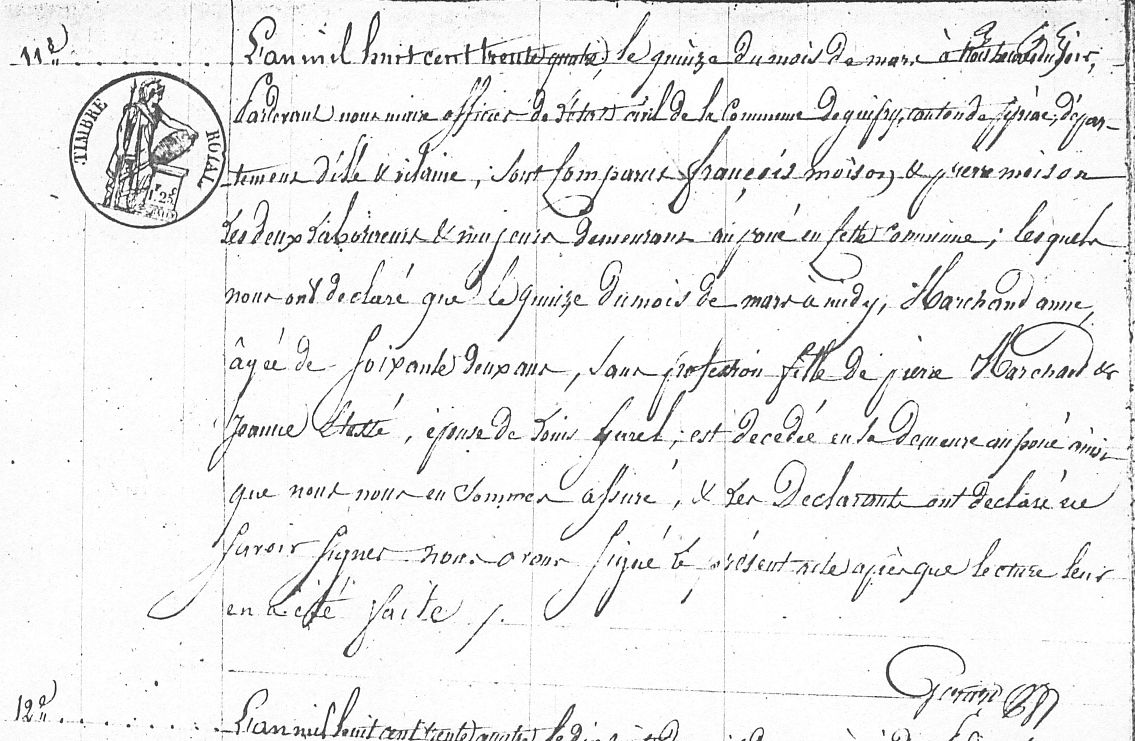 11e
L'an mil huit cent trente quatre, le quinze du mois de mars à trois heures du soir,
TIMBRE ROIAL
1.25
Pardevant nous maire officier de l'état civil de la Commune de guipry, canton de pipriac, dépar-
tement d'ille & vilaine, sont Comparus françois moison, & pierre moison
Les deux Laboureurs & majeurs demeurant au poué en cette commune; lesquels
nous ont declaré que le quinze du mois de mars à midy, Marchand anne,
âgée de soixante deux ans, sans profession fille de pierre Marchand &
Jeanne, épouse de Louis, est decedée en sa demeure au poué ainsi
que nous nous en sommes assuré, & Les Declarants ont declaré ne
savoir signer nous avons signé le présent acte après que lecture leur
en a été faite /.
12e
L'an mil huit cent trente quatre le